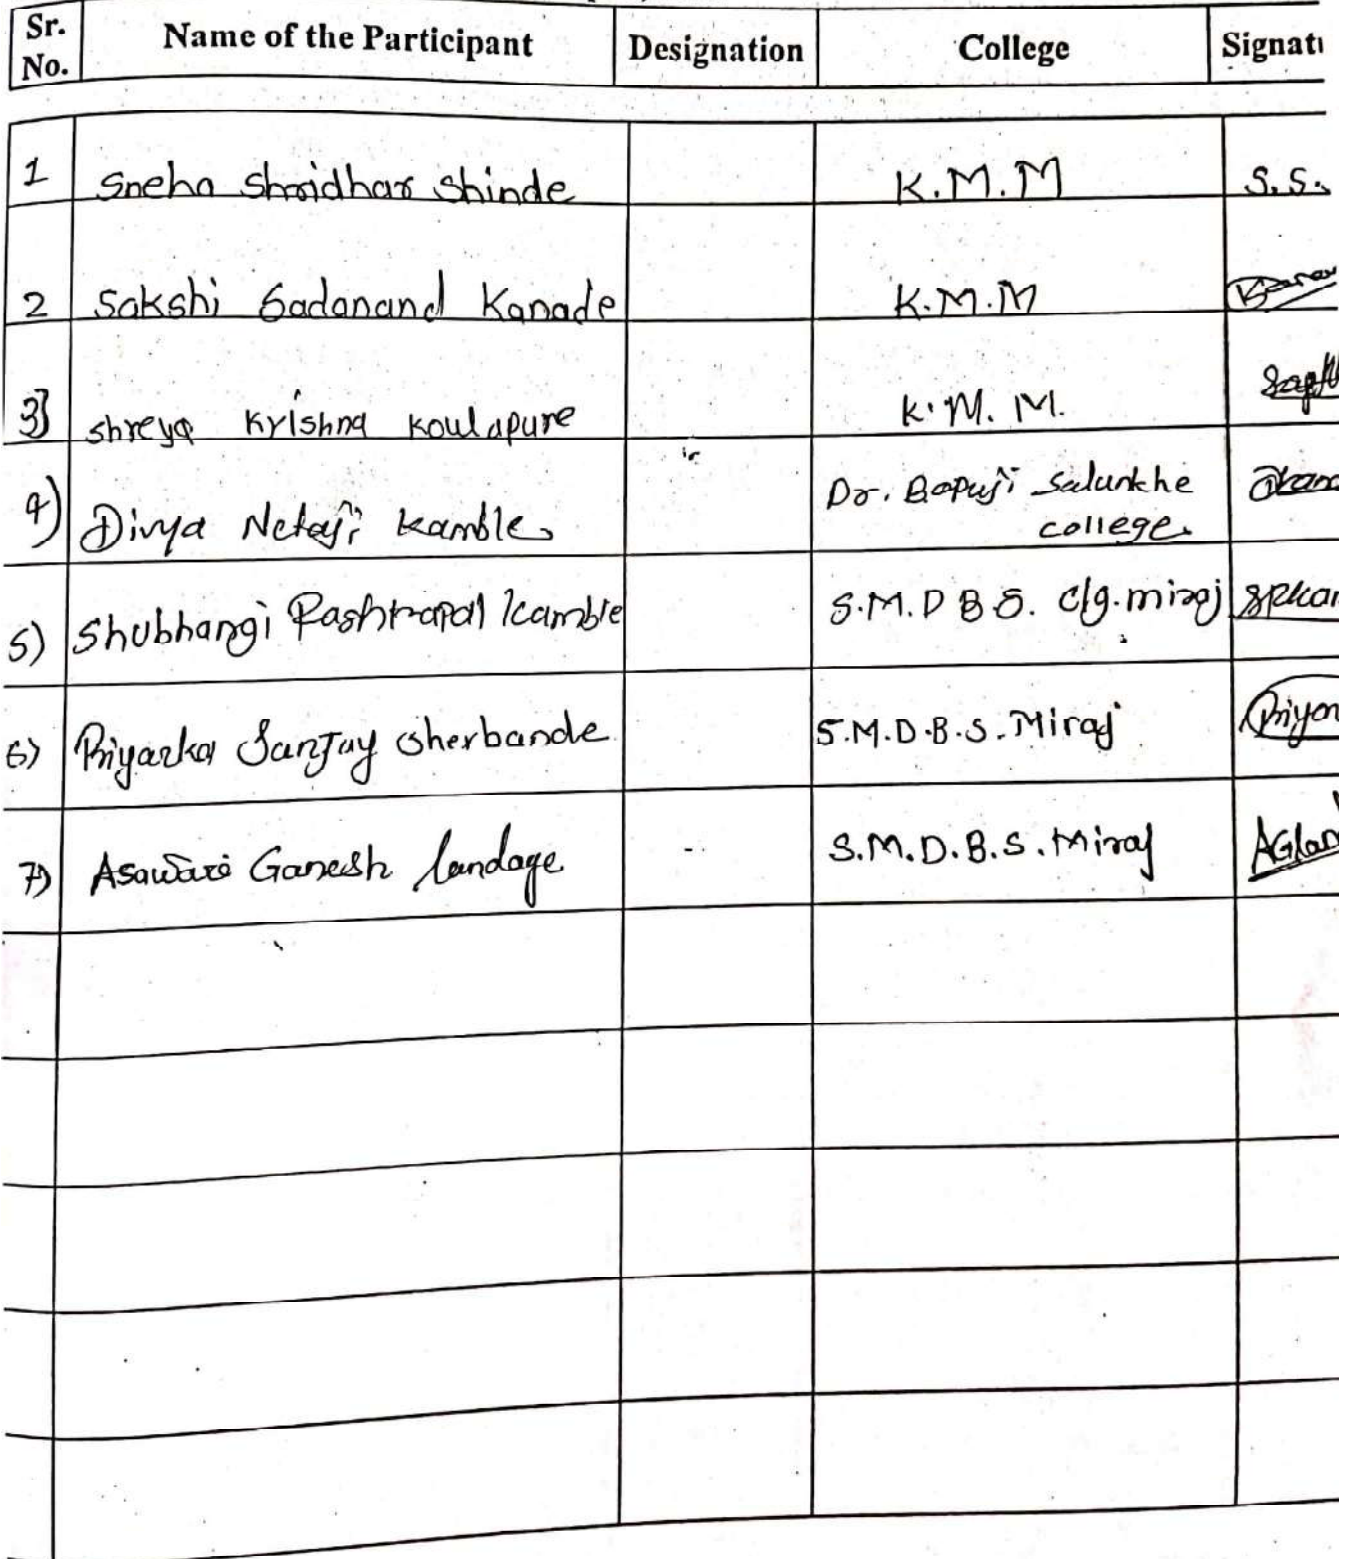 Sr. No. Name of the Participant Designation College Signatu
1 Sneha Shridhar Shinde K.M.M S.S.
2 Sakshi Sadanand Kanade K.M.M
3] shreya Krishna Koulapure K.M.M.
4) Divya Netaji Kamble Dr. Bapuji Salunkhe college
5) Shubhangi Rashtrapal Kamble S.M.D B S. clg. miraj SPkam
6) Priyanka Sanjay Sherbande S.M.D.B.S. Miraj Priyan
7) Asawari Ganesh landage S.M.D.B.S. Miraj AGlan